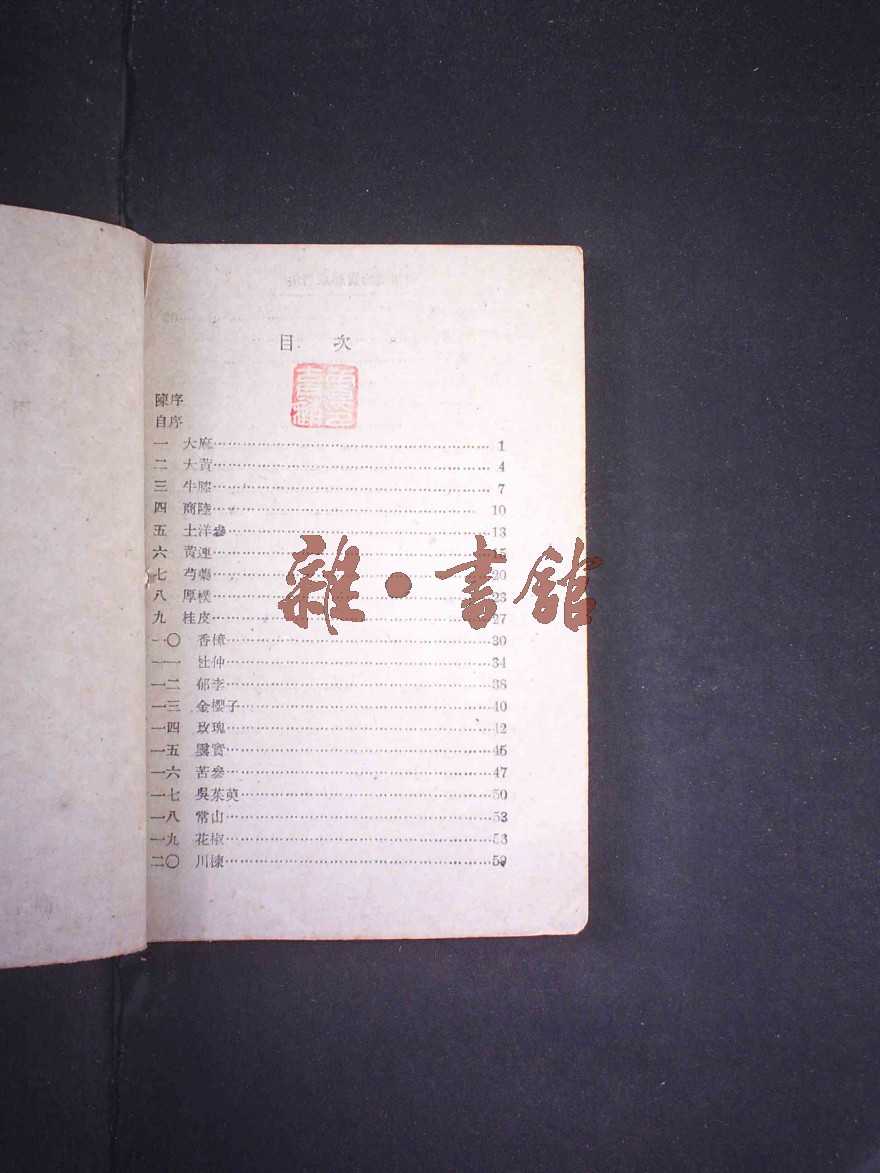 目 次
陳序
自序
一 大麻 1
二 大黃 4
三 牛膝 7
四 商陸 10
五 土洋參 13
六 黃連 15
七 芍藥 20
八 厚樸 23
九 桂皮 27
一〇 香樟 30
一一 杜仲 34
一二 郁李 38
一三 金櫻子 40
一四 玫瑰 42
一五 雲實 45
一六 苦參 47
一七 吳茱萸 50
一八 常山 53
一九 花椒 56
二〇 川楝 59
雜·書館